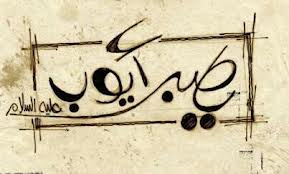 يا صبر أيوب عليه السلام